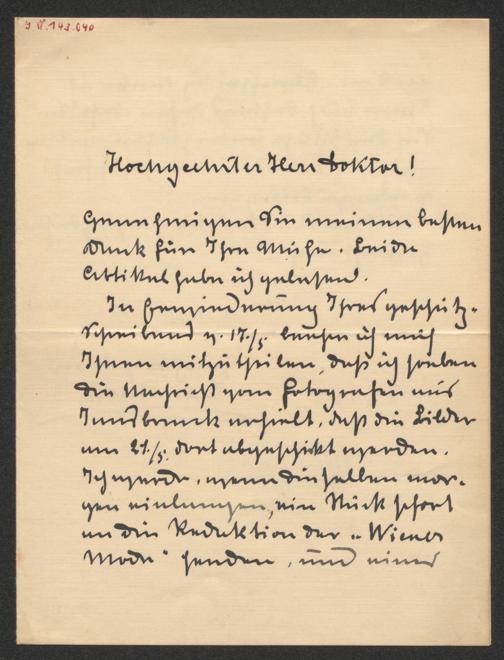 J.N. 143.040
Hochgeehrter Herr Doktor!
Genehmigen Sie meinen besten
Dank für Ihre Mühe. Beide
Artikel habe ich gelesen.
In Erwiederung Ihres geschätz-
Schreibens v. 17./5. beehre ich mich
Ihnen mitzutheilen, daß ich soeben
die Nachricht vom Fotografen aus
Innsbruck erhielt, daß die Bilder
am 21./5. dort abgeschickt werden.
Ich werde, wenn dieselben mor-
gen einlangen, ein Stück sofort
an die Redaktion der „Wiener
Mode" senden, und eines